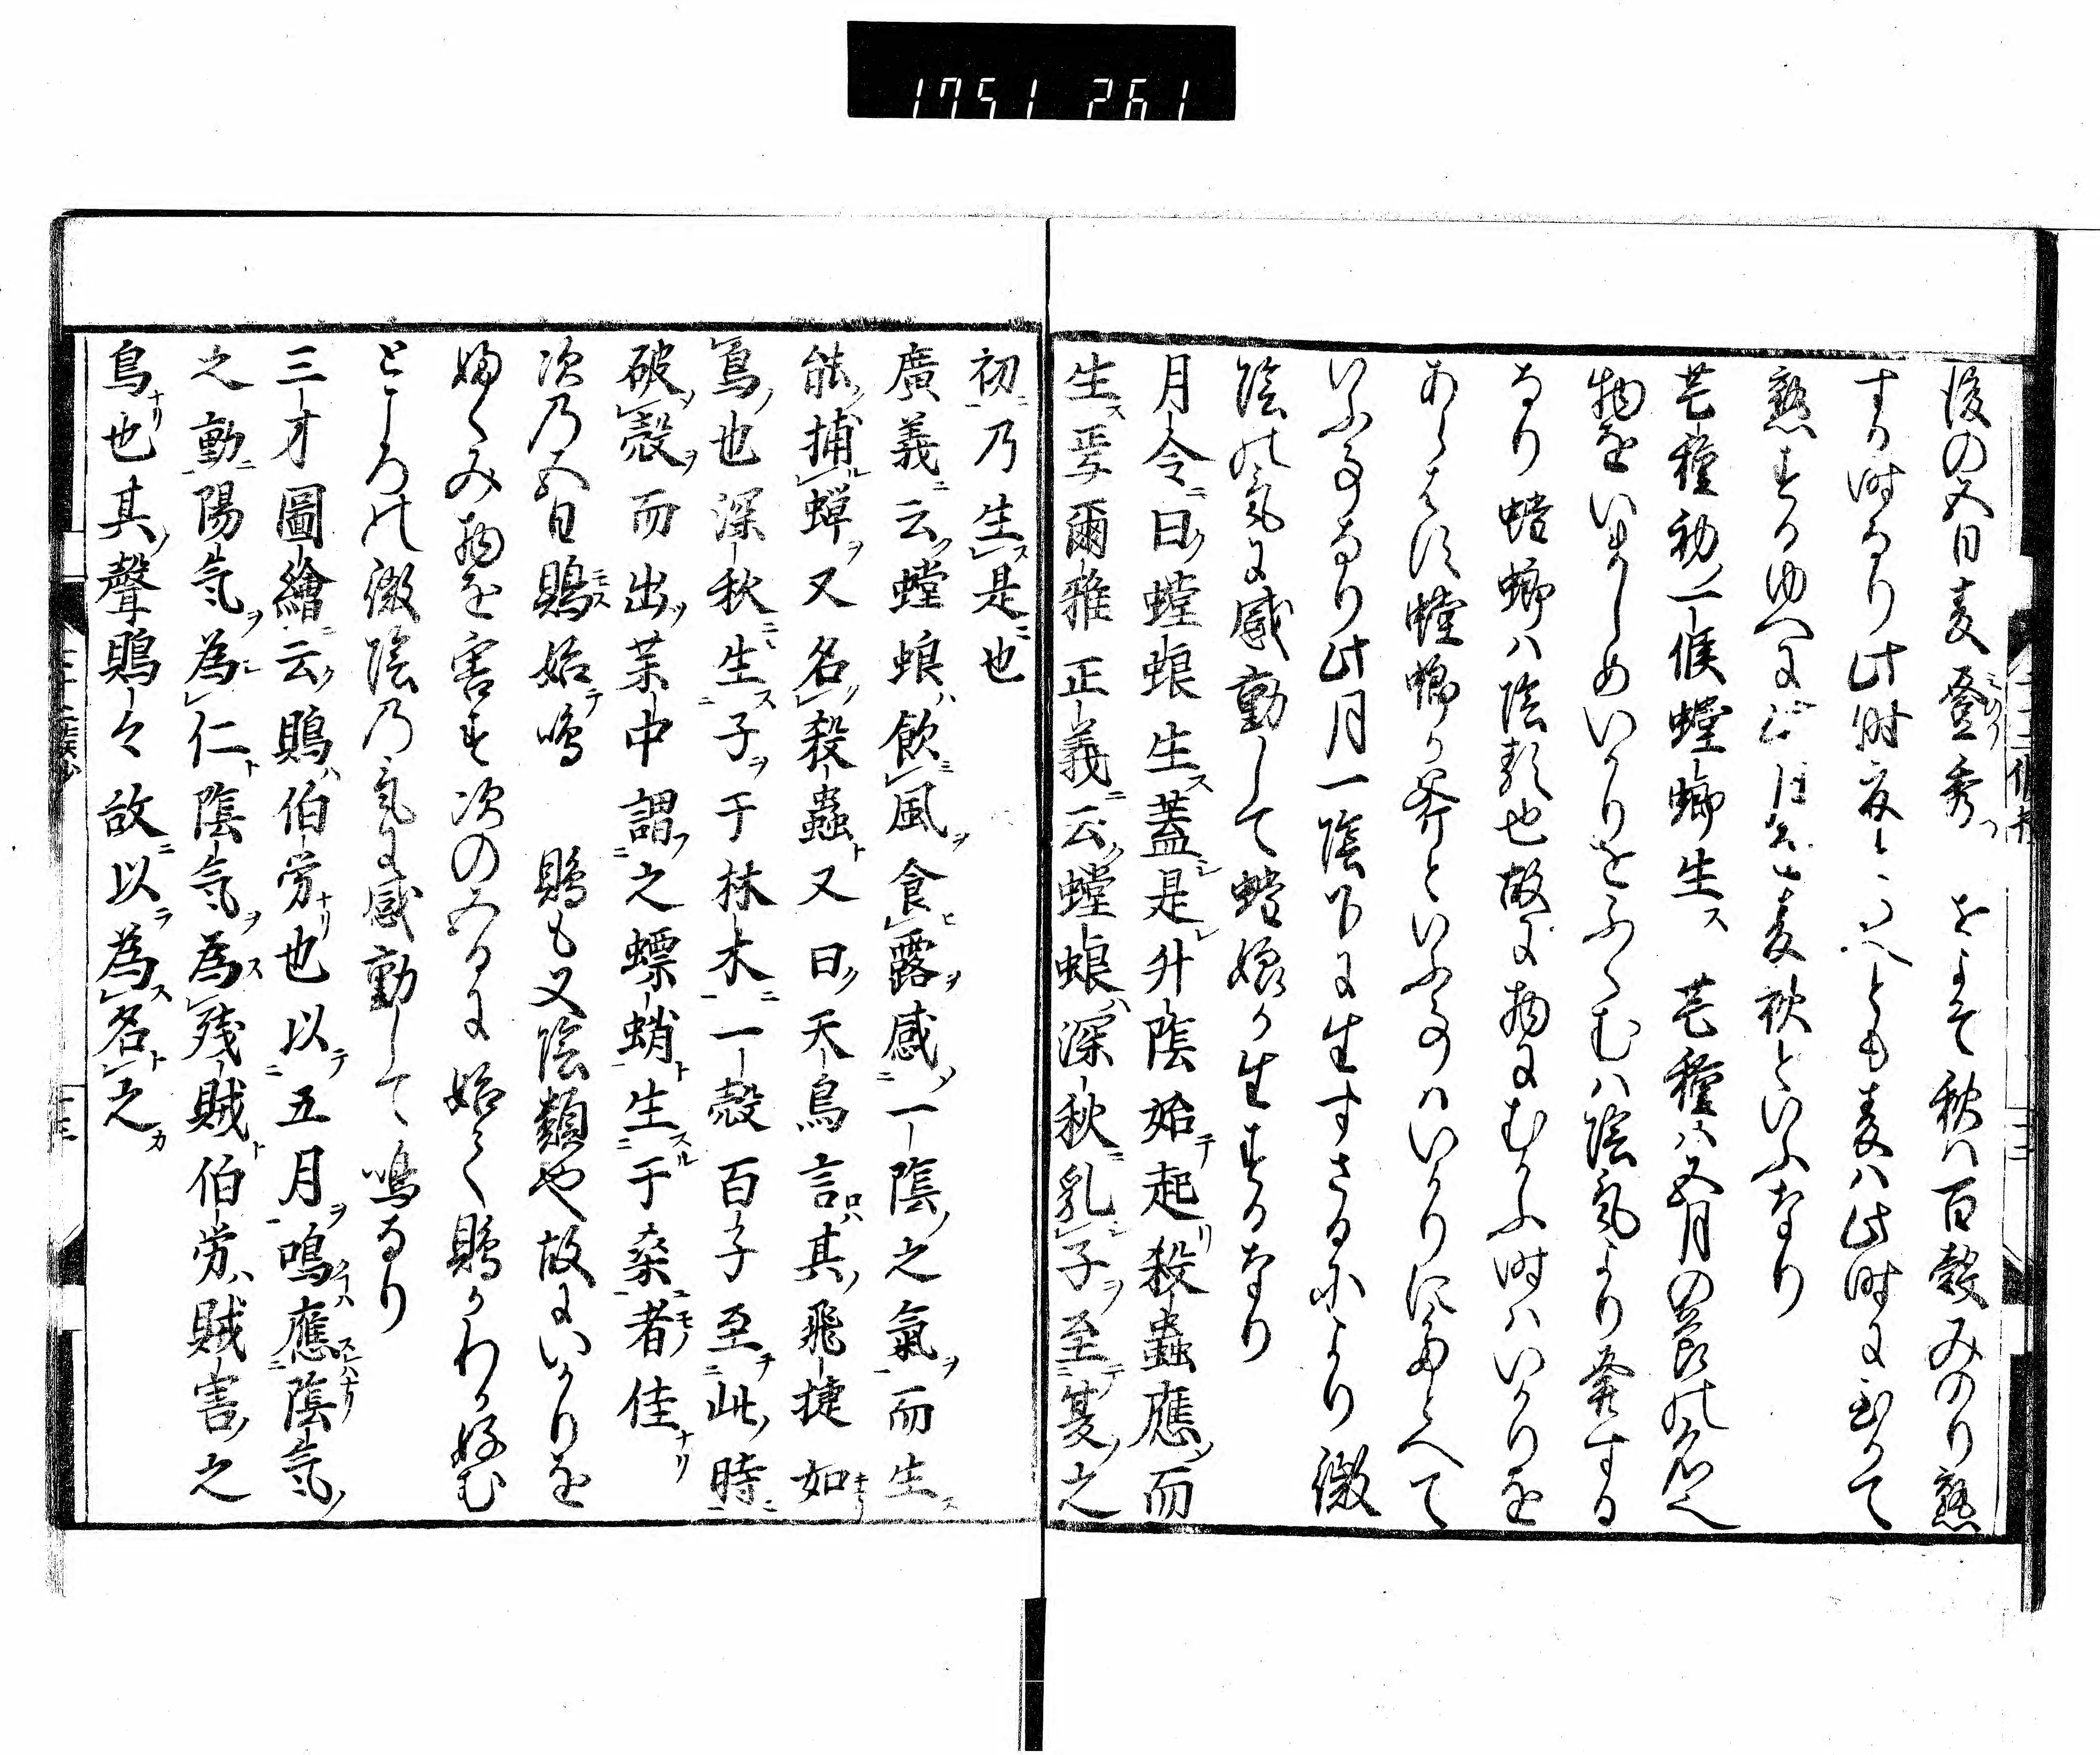 1751 261
後の五日麦登秀 およそ秋ハ百穀みのり熟
する時なり此時夏といへとも麦ハ此時に至りて
熟するゆへに麦秋といふなり
芒種初一候螳螂生ス 芒種ハ五月の節の名也
物をいましめいかりをふくむハ陰気より発する
なり螳螂ハ陰類也故に物にむかふ時ハいかりを
螳螂か斧といふ事ハいかりにたとへて
いふ事なり此月一陰下に生するにより微
陰の気に感動して螳螂か生するなり
月令ニ曰螳蜋生ス蓋是レ升陰始テ起リ殺蟲應而
生ス焉爾雅正義ニ云螳蜋ハ深秋ニ乳子ヲ至テ夏之
初ニ乃生ス是也
廣義ニ云螳蜋ハ飲風ヲ食露ヲ感一陰之氣ヲ而生ス
能捕ル蟬ヲ又名殺蟲ト又曰天馬言其飛捷如
馬也深秋ニ生ス子ヲ于林木ニ一殻百子至テ此時ニ
破殻ヲ而出ツ葉中謂之螵蛸ト生スル于桑ニ者モノ佳ナリ
次乃五日鵙モス始テ鳴 鵙も又陰類也故にいかりを
ふくみ物を害す次の五日に始て鵙かわか好む
ところの微陰乃気に感動して鳴なり
三才圖繪ニ云鵙ハ伯労ナリ也以テ五月ヲ鳴應陰氣
之動ニ陽氣ヲ為仁ト陰氣ヲ為ス残賊ト伯労ハ賊害之
鳥ナリ也其聲鵙々故ニ以ラ為ス名ト之